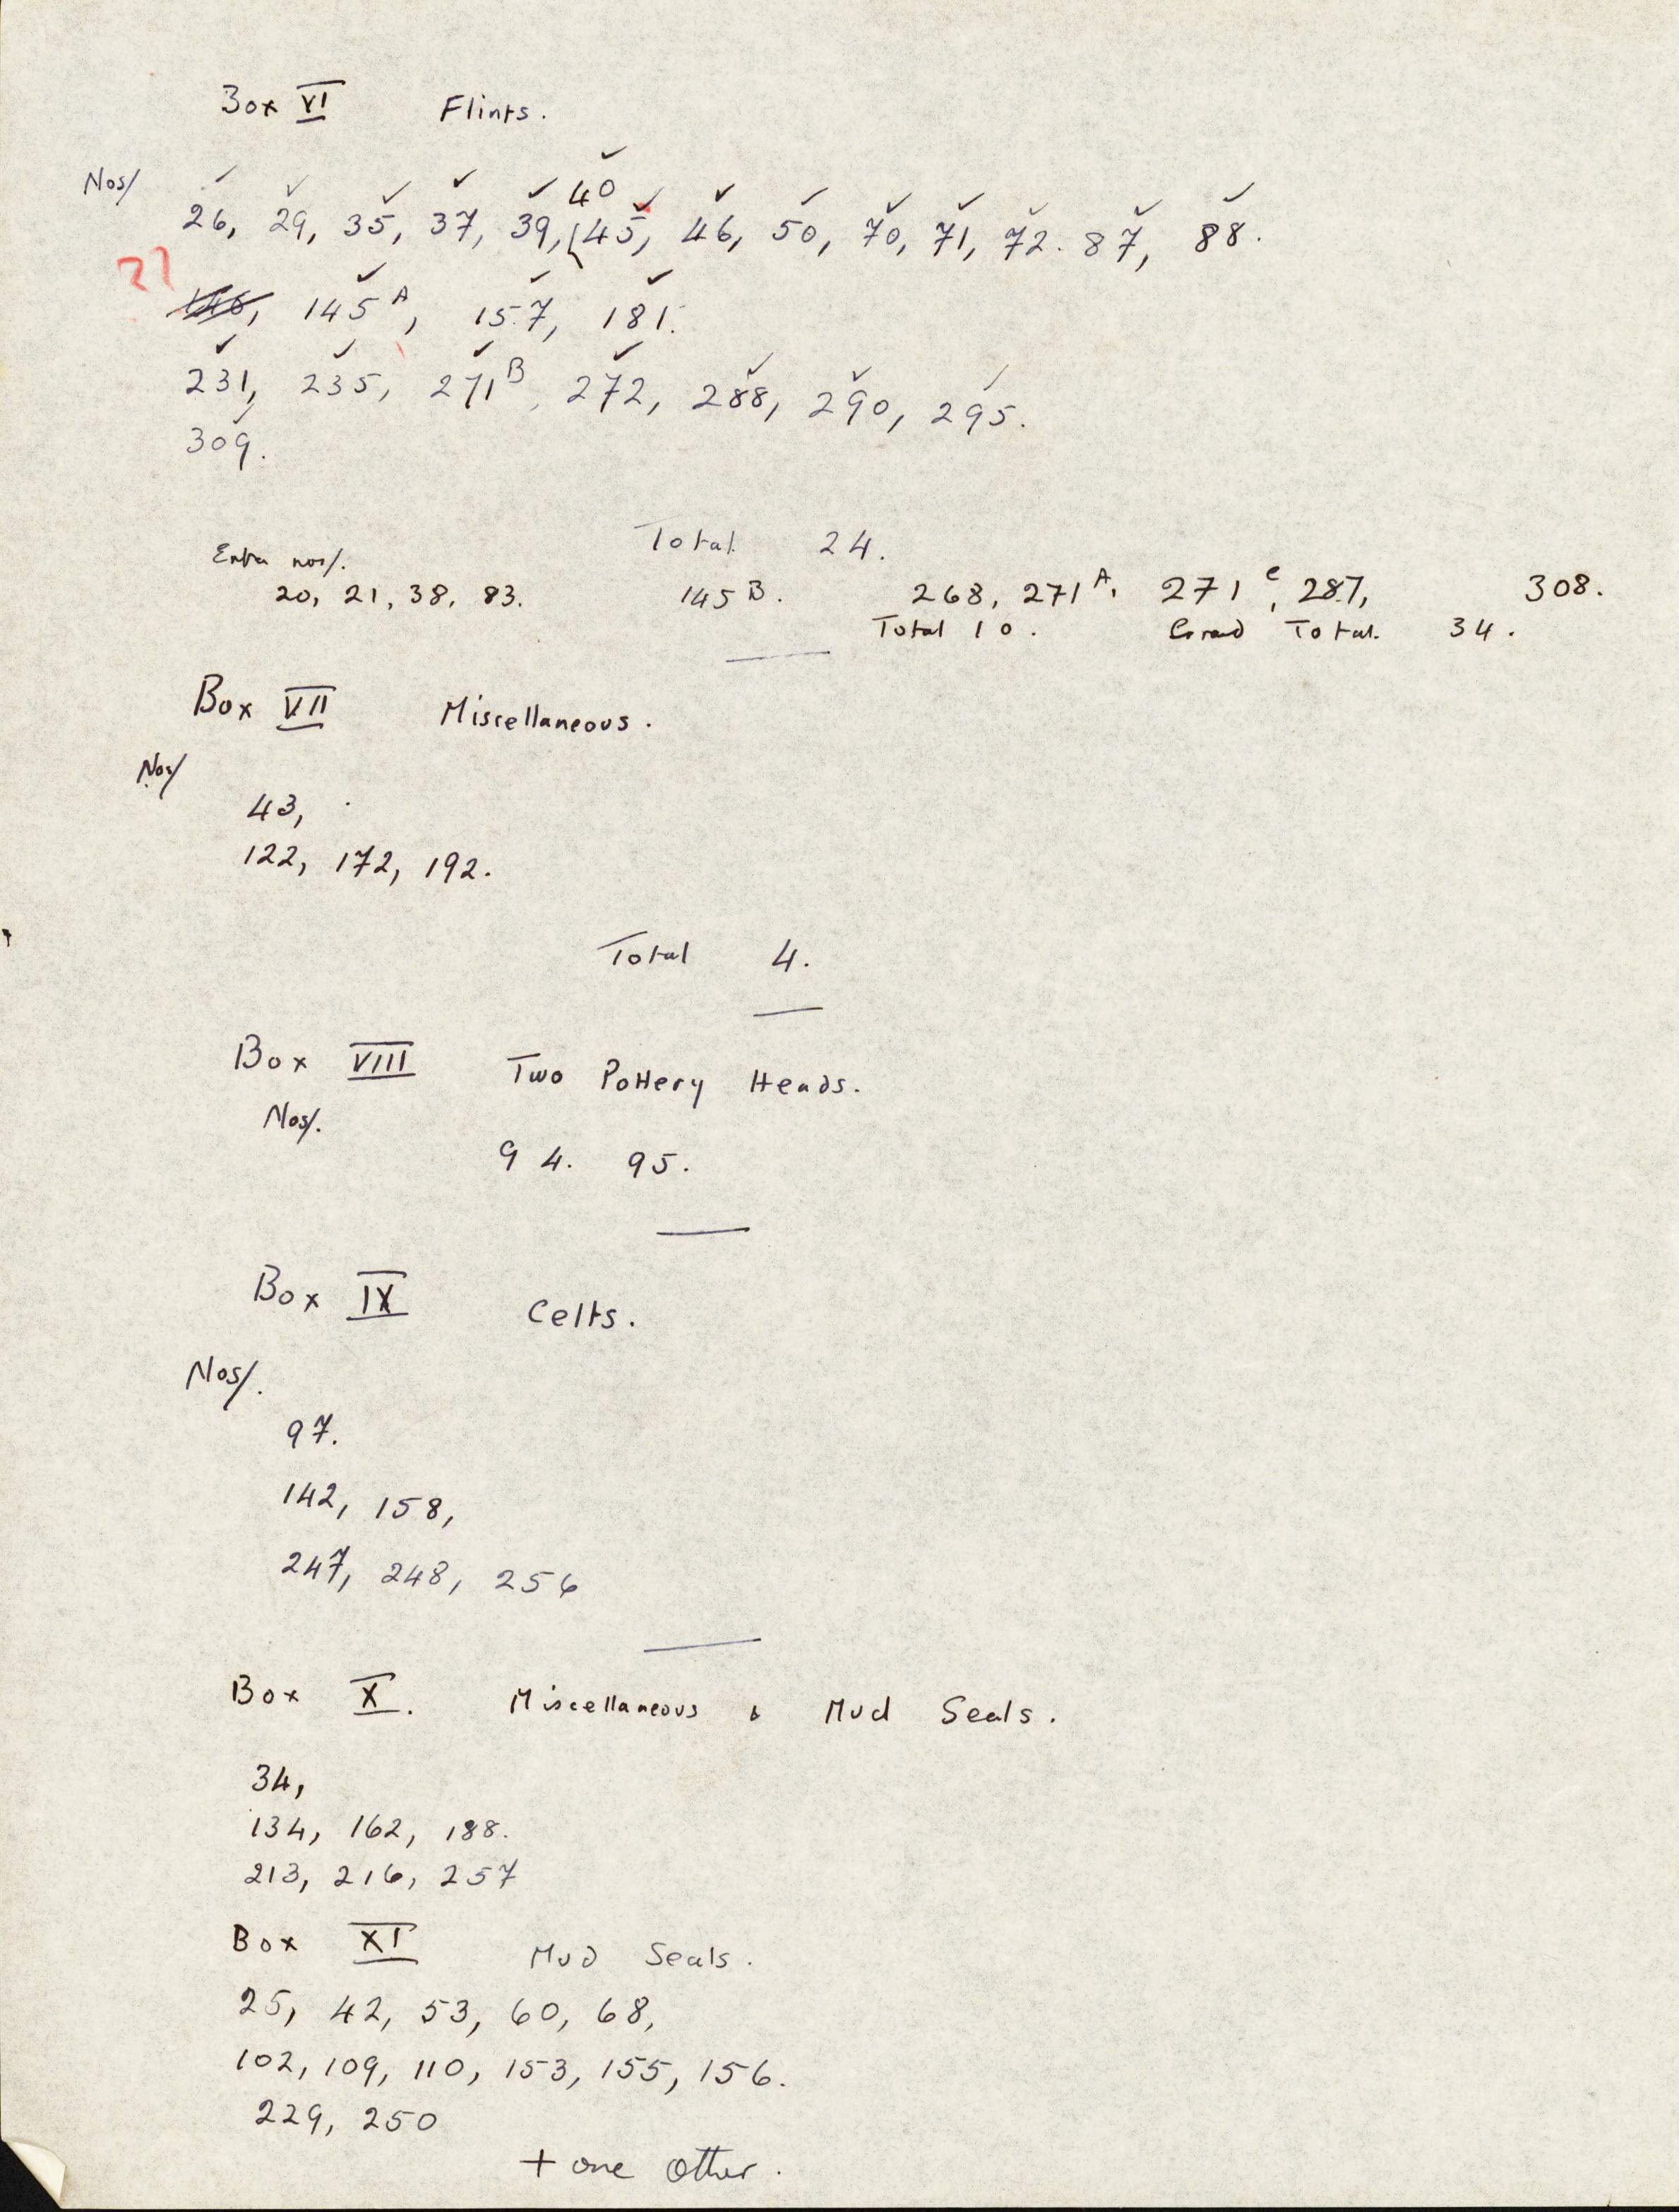 Box VI Flints.
40
Nos/ 26, 29, 35, 37, 39, (45, 46, 50, 70, 71, 72. 87, 88.
??
145A, 157, 181.
231, 235, 271B, 272, 288, 290, 295.
309.
Total 24.
Extra nos/.
20, 21, 38, 83. 145B. 268, 271A, 271C, 287, 308.
Total 10. Grand Total. 34.
Box VII Miscellaneous.
Nos/
43,
122, 172, 192.
Total 4.
Box VIII Two Pottery Heads.
Nos/.
94. 95.
Box IX Celts.
Nos/.
97.
142, 158,
247, 248, 256
Box X. Miscellaneous & Mud Seals.
34,
134, 162, 188.
213, 216, 257
Box XI Mud Seals.
25, 42, 53, 60, 68,
102, 109, 110, 153, 155, 156.
229, 250
+ one other.